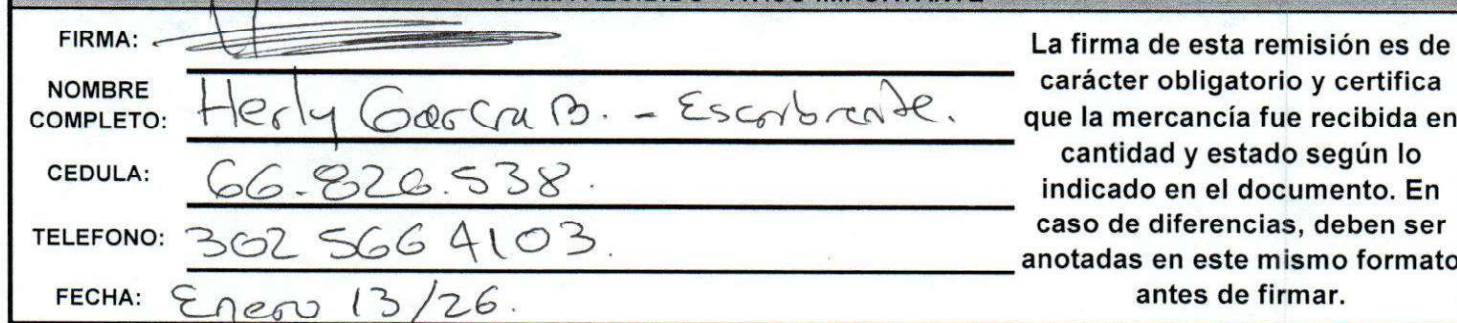 FIRMA:
NOMBRE COMPLETO: Herly Garcia B. - Escribiente.
CEDULA: 66.826.538.
TELEFONO: 302 566 4103.
FECHA: Enero 13/26.
La firma de esta remisión es de
carácter obligatorio y certifica
que la mercancía fue recibida en
cantidad y estado según lo
indicado en el documento. En
caso de diferencias, deben ser
anotadas en este mismo formato
antes de firmar.